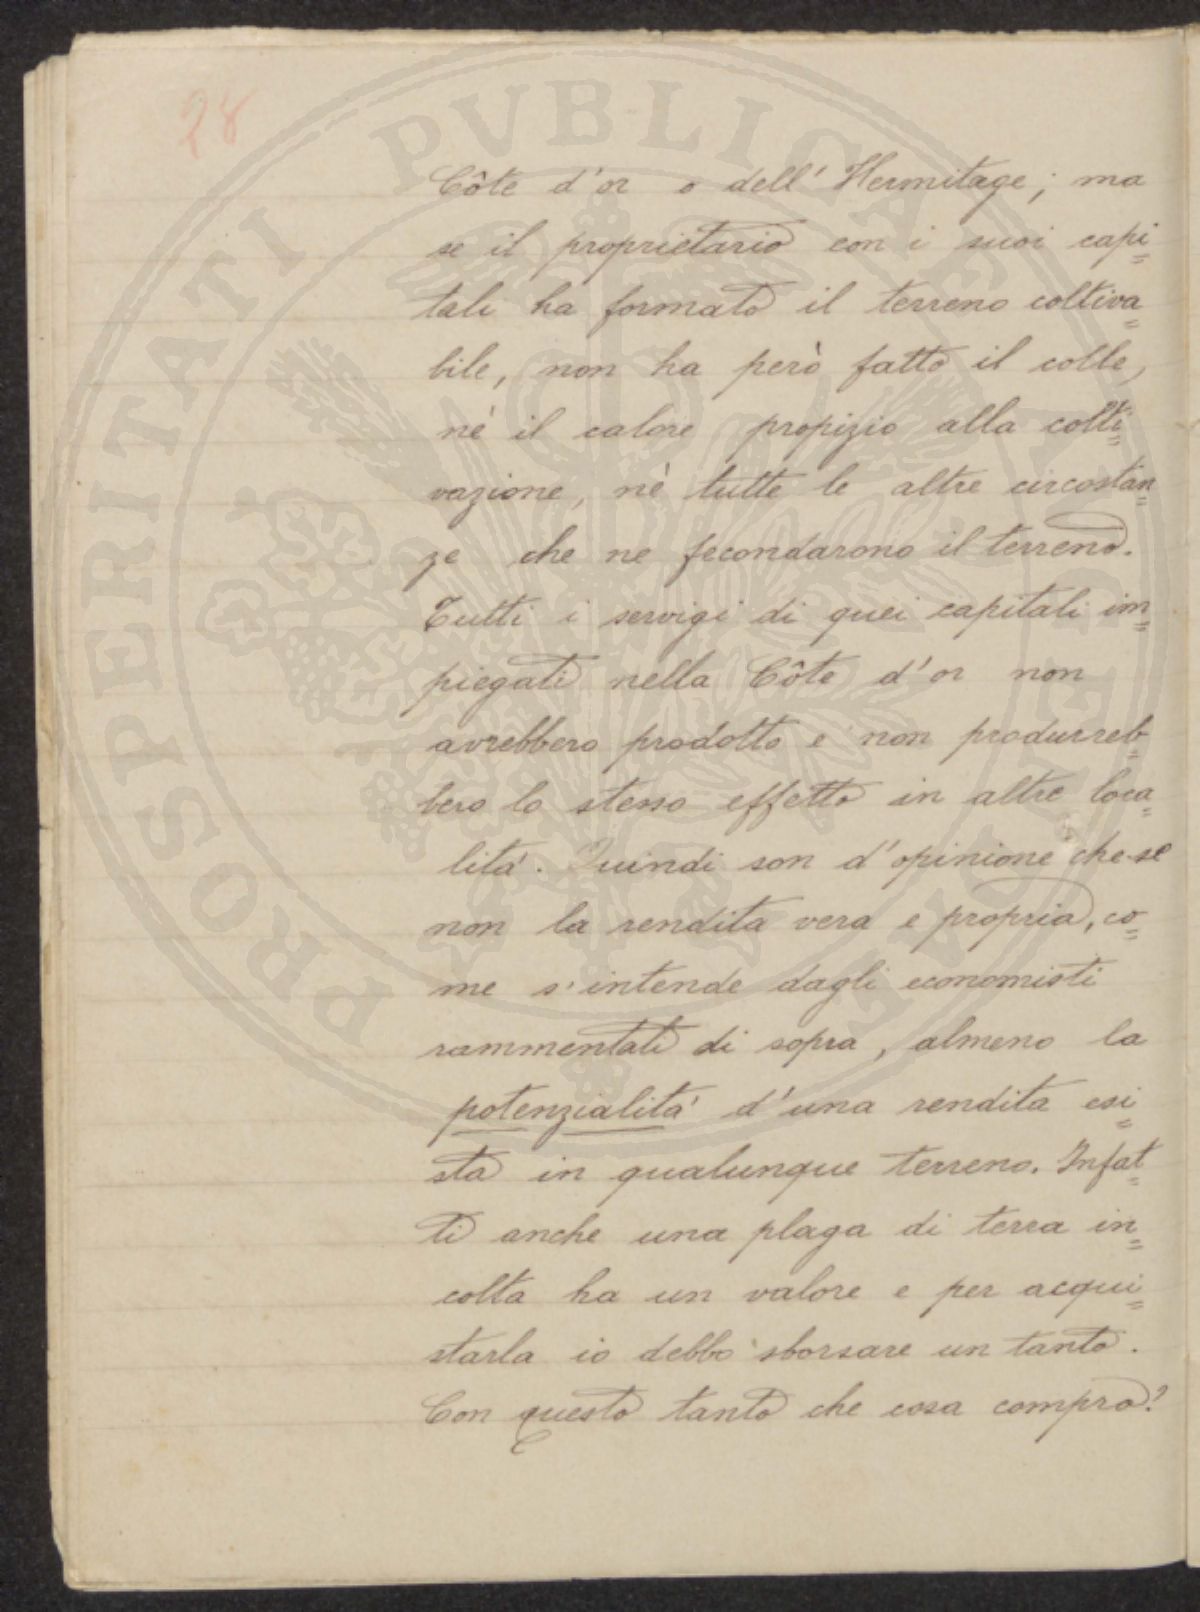 28
Côte d'or o dell'Hermitage; ma
se il proprietario con i suoi capi=
tali ha formato il terreno coltiva=
bile, non ha però fatto il colle,
nè il calore propizio alla colti=
vazione, nè tutte le altre circostan=
ze che ne fecondarono il terreno.
Tutti i servigi di quei capitali im=
piegati nella Côte d'or non
avrebbero prodotto e non produrreb=
bero lo stesso effetto in altre loca=
lità. Quindi son d'opinione che se
non la rendita vera e propria, co=
me s'intende dagli economisti
rammentati di sopra, almeno la
potenzialità d'una rendita esi=
sta in qualunque terreno. Infat=
ti anche una plaga di terra in=
colta ha un valore e per acqui=
starla io debbo sborsare un tanto.
Con questo tanto che cosa compro?
PVBLICAE
PROSPERITATI